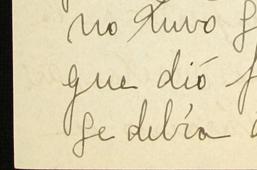 no tuvo
que dió
se debía